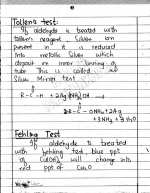 Tollen's test:
If aldehyde is treated with
tollen's reagent, Silver ion
present in it is reduced
into metallic Silver which
deposit on inner lining of
tube This is called as
Silver Mirror test
O
R-C-H + 2Ag(NH3)OH →
R-C-ONH4 + 2Ag
+ 3NH3 + H2O
Fehling Test
If aldehyde is treated
with fehling test, blue ppt
of Cu(OH)2 will change into
red ppt of Cu2O